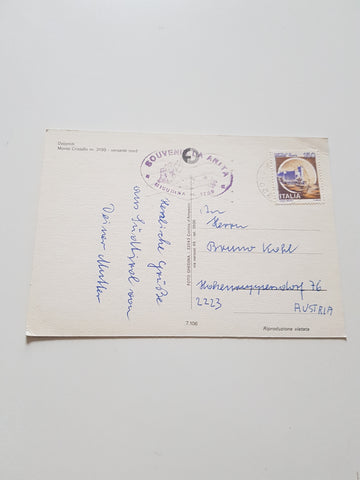 Dolomiti
Monte Cristallo m. 3199 - versante nord
SOUVENIR DA ARITA
MISURINA
ITALIA
Herzliche Grüße
aus Südtirol von
Deiner Mutter
An
Herrn
Bruno Kohl
Hohenruppersdorf 76
2223
AUSTRIA
FOTO GHEDINA
7.106
Riproduzione vietata